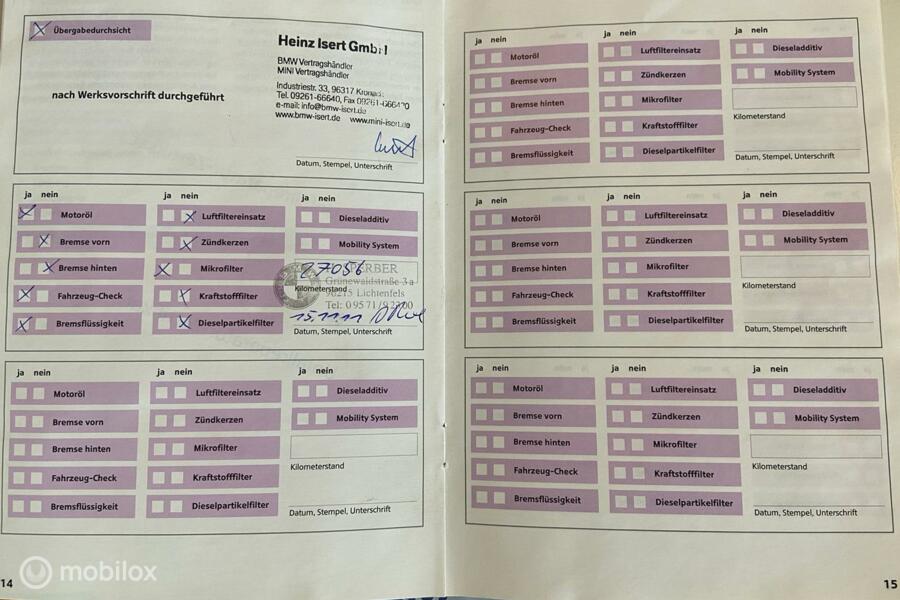 Übergabedurchsicht
nach Werksvorschrift durchgeführt
Heinz Isert GmbH
BMW Vertragshändler
MINI Vertragshändler
Industriestr. 33, 96317 Kronach
Tel. 09261-66640, Fax 09261-666420
e-mail: info@bmw-isert.de
www.bmw-isert.de www.mini-isert.de
Datum, Stempel, Unterschrift
ja nein
Motoröl
Bremse vorn
Bremse hinten
Fahrzeug-Check
Bremsflüssigkeit
ja nein
Luftfiltereinsatz
Zündkerzen
Mikrofilter
Kraftstofffilter
Dieselpartikelfilter
Dieseladditiv
Mobility System
27056
FERBER
Grünewaldstraße 3 a
Kilometerstand
96215 Lichtenfels
Tel: 0 95 71 /
15.11.11
Datum, Stempel, Unterschrift
ja nein
Motoröl
Bremse vorn
Bremse hinten
Fahrzeug-Check
Bremsflüssigkeit
ja nein
Luftfiltereinsatz
Zündkerzen
Mikrofilter
Kraftstofffilter
Dieselpartikelfilter
ja nein
Dieseladditiv
Mobility System
Kilometerstand
Datum, Stempel, Unterschrift
14
mobilox
ja nein
Motoröl
Bremse vorn
Bremse hinten
Fahrzeug-Check
Bremsflüssigkeit
ja nein
Luftfiltereinsatz
Zündkerzen
Mikrofilter
Kraftstofffilter
Dieselpartikelfilter
ja nein
Dieseladditiv
Mobility System
Kilometerstand
Datum, Stempel, Unterschrift
ja nein
Motoröl
Bremse vorn
Bremse hinten
Fahrzeug-Check
Bremsflüssigkeit
ja nein
Luftfiltereinsatz
Zündkerzen
Mikrofilter
Kraftstofffilter
Dieselpartikelfilter
ja nein
Dieseladditiv
Mobility System
Kilometerstand
Datum, Stempel, Unterschrift
ja nein
Motoröl
Bremse vorn
Bremse hinten
Fahrzeug-Check
Bremsflüssigkeit
ja nein
Luftfiltereinsatz
Zündkerzen
Mikrofilter
Kraftstofffilter
Dieselpartikelfilter
ja nein
Dieseladditiv
Mobility System
Kilometerstand
Datum, Stempel, Unterschrift
15